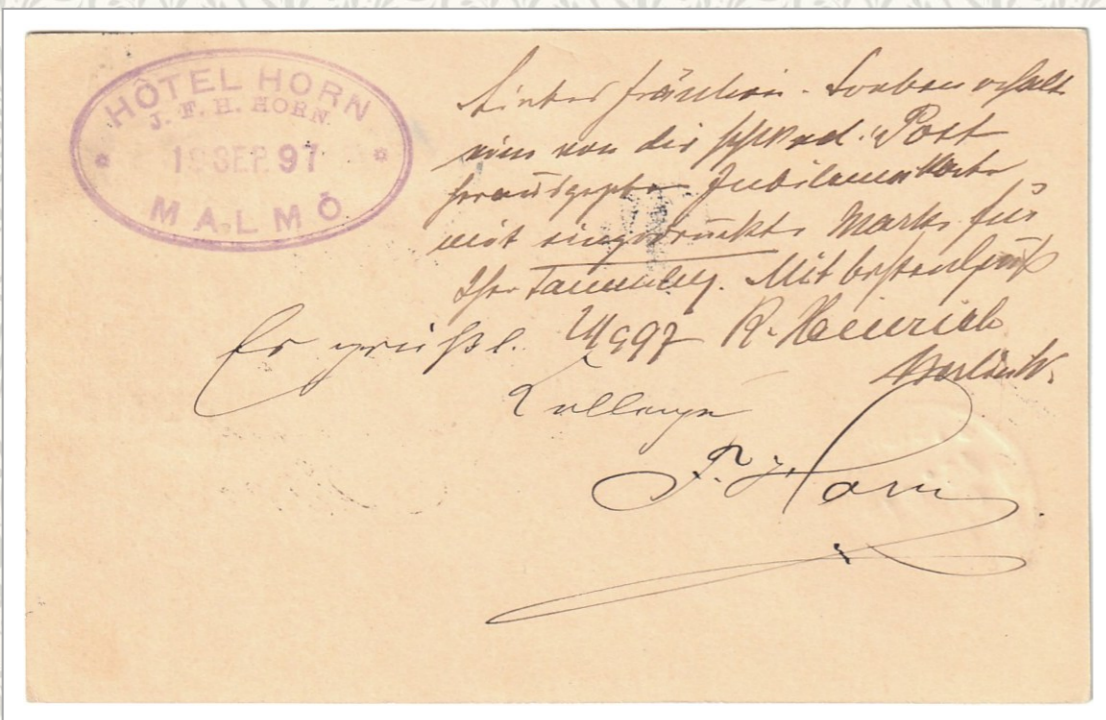 HÔTEL HORN
J. F. H. HORN.
SEP. 97
MALMÖ
Fräulein. Soeben erhalt
eine von der schwed. Post
Jubiläumskarte
mit eingedruckte Marke für
Ihre Sammlung. Mit besten Gruß
Es grüßt. 97 R. Heinrich
Berlin W.
Kollege
Horn